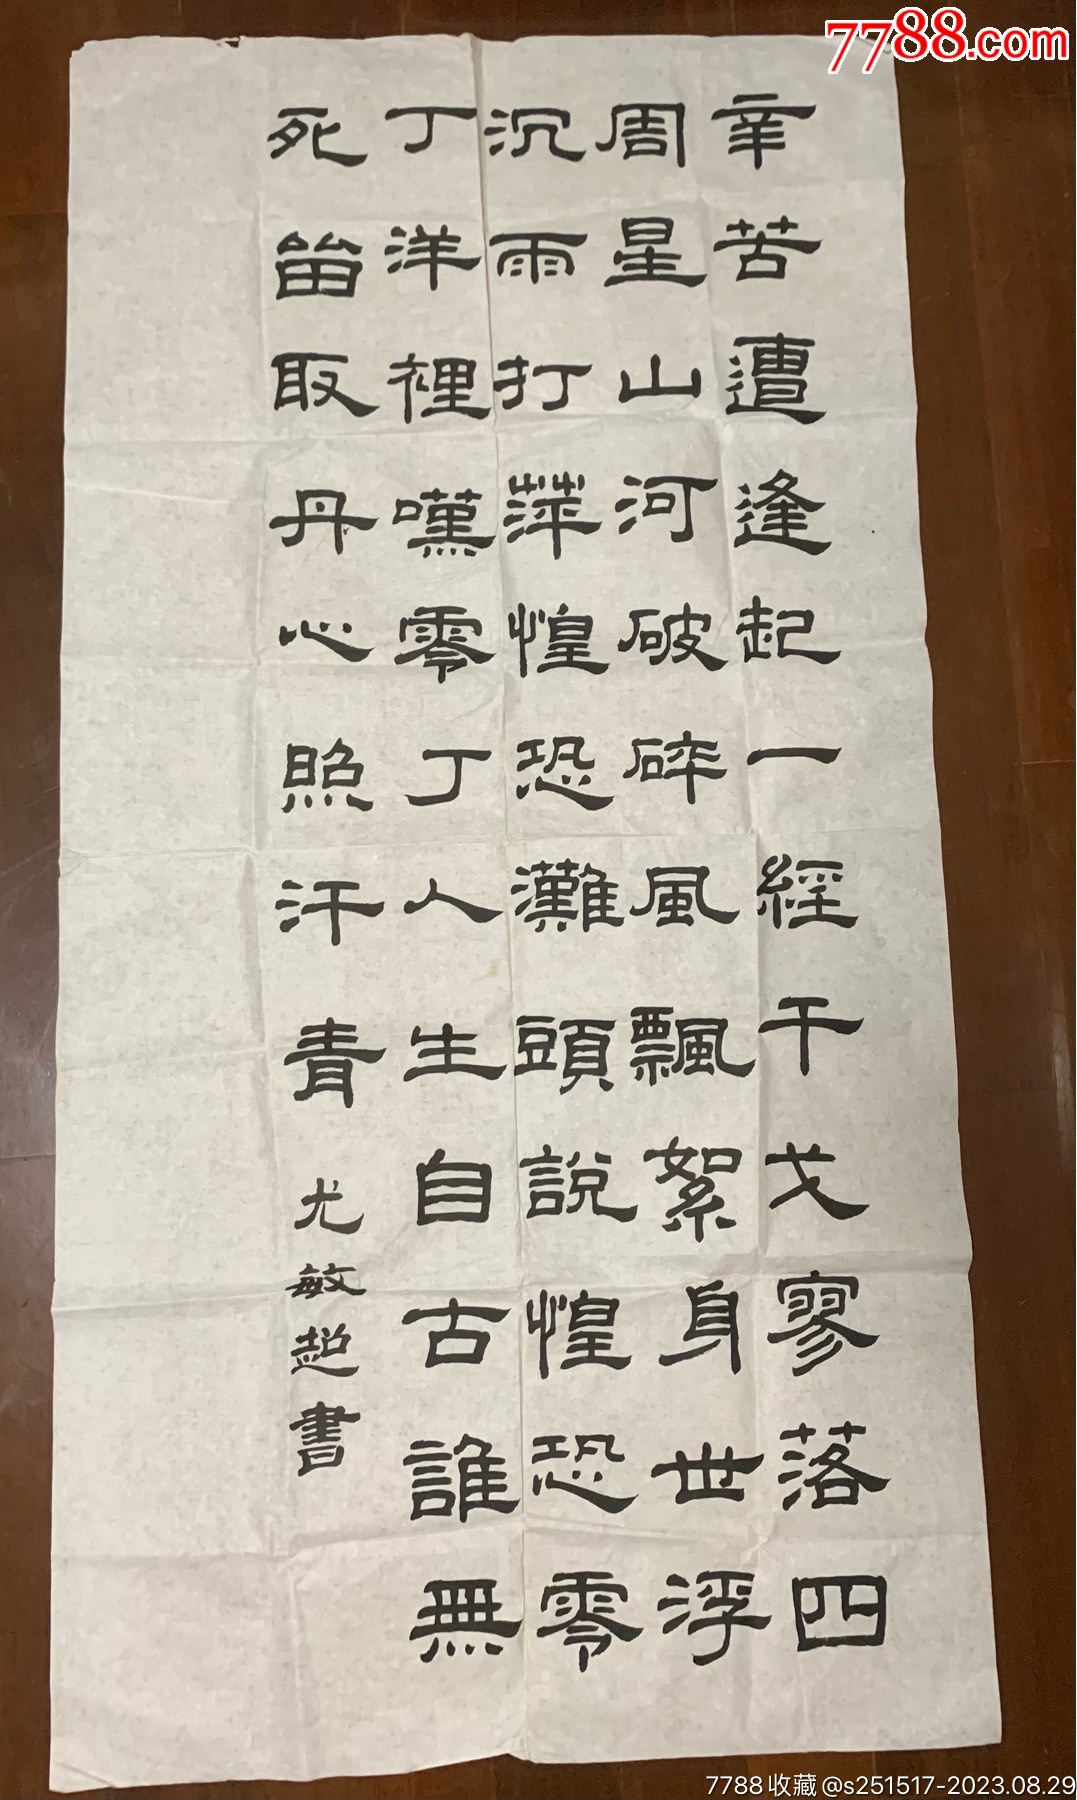 7788.com
辛苦遭逢起一經干戈寥落四
周星山河破碎風飄絮身世浮
沉雨打萍惶恐灘頭說惶恐零
丁洋裡嘆零丁人生自古誰無
死留取丹心照汗青 尤敏超書
7788收藏@s251517-2023.08.29